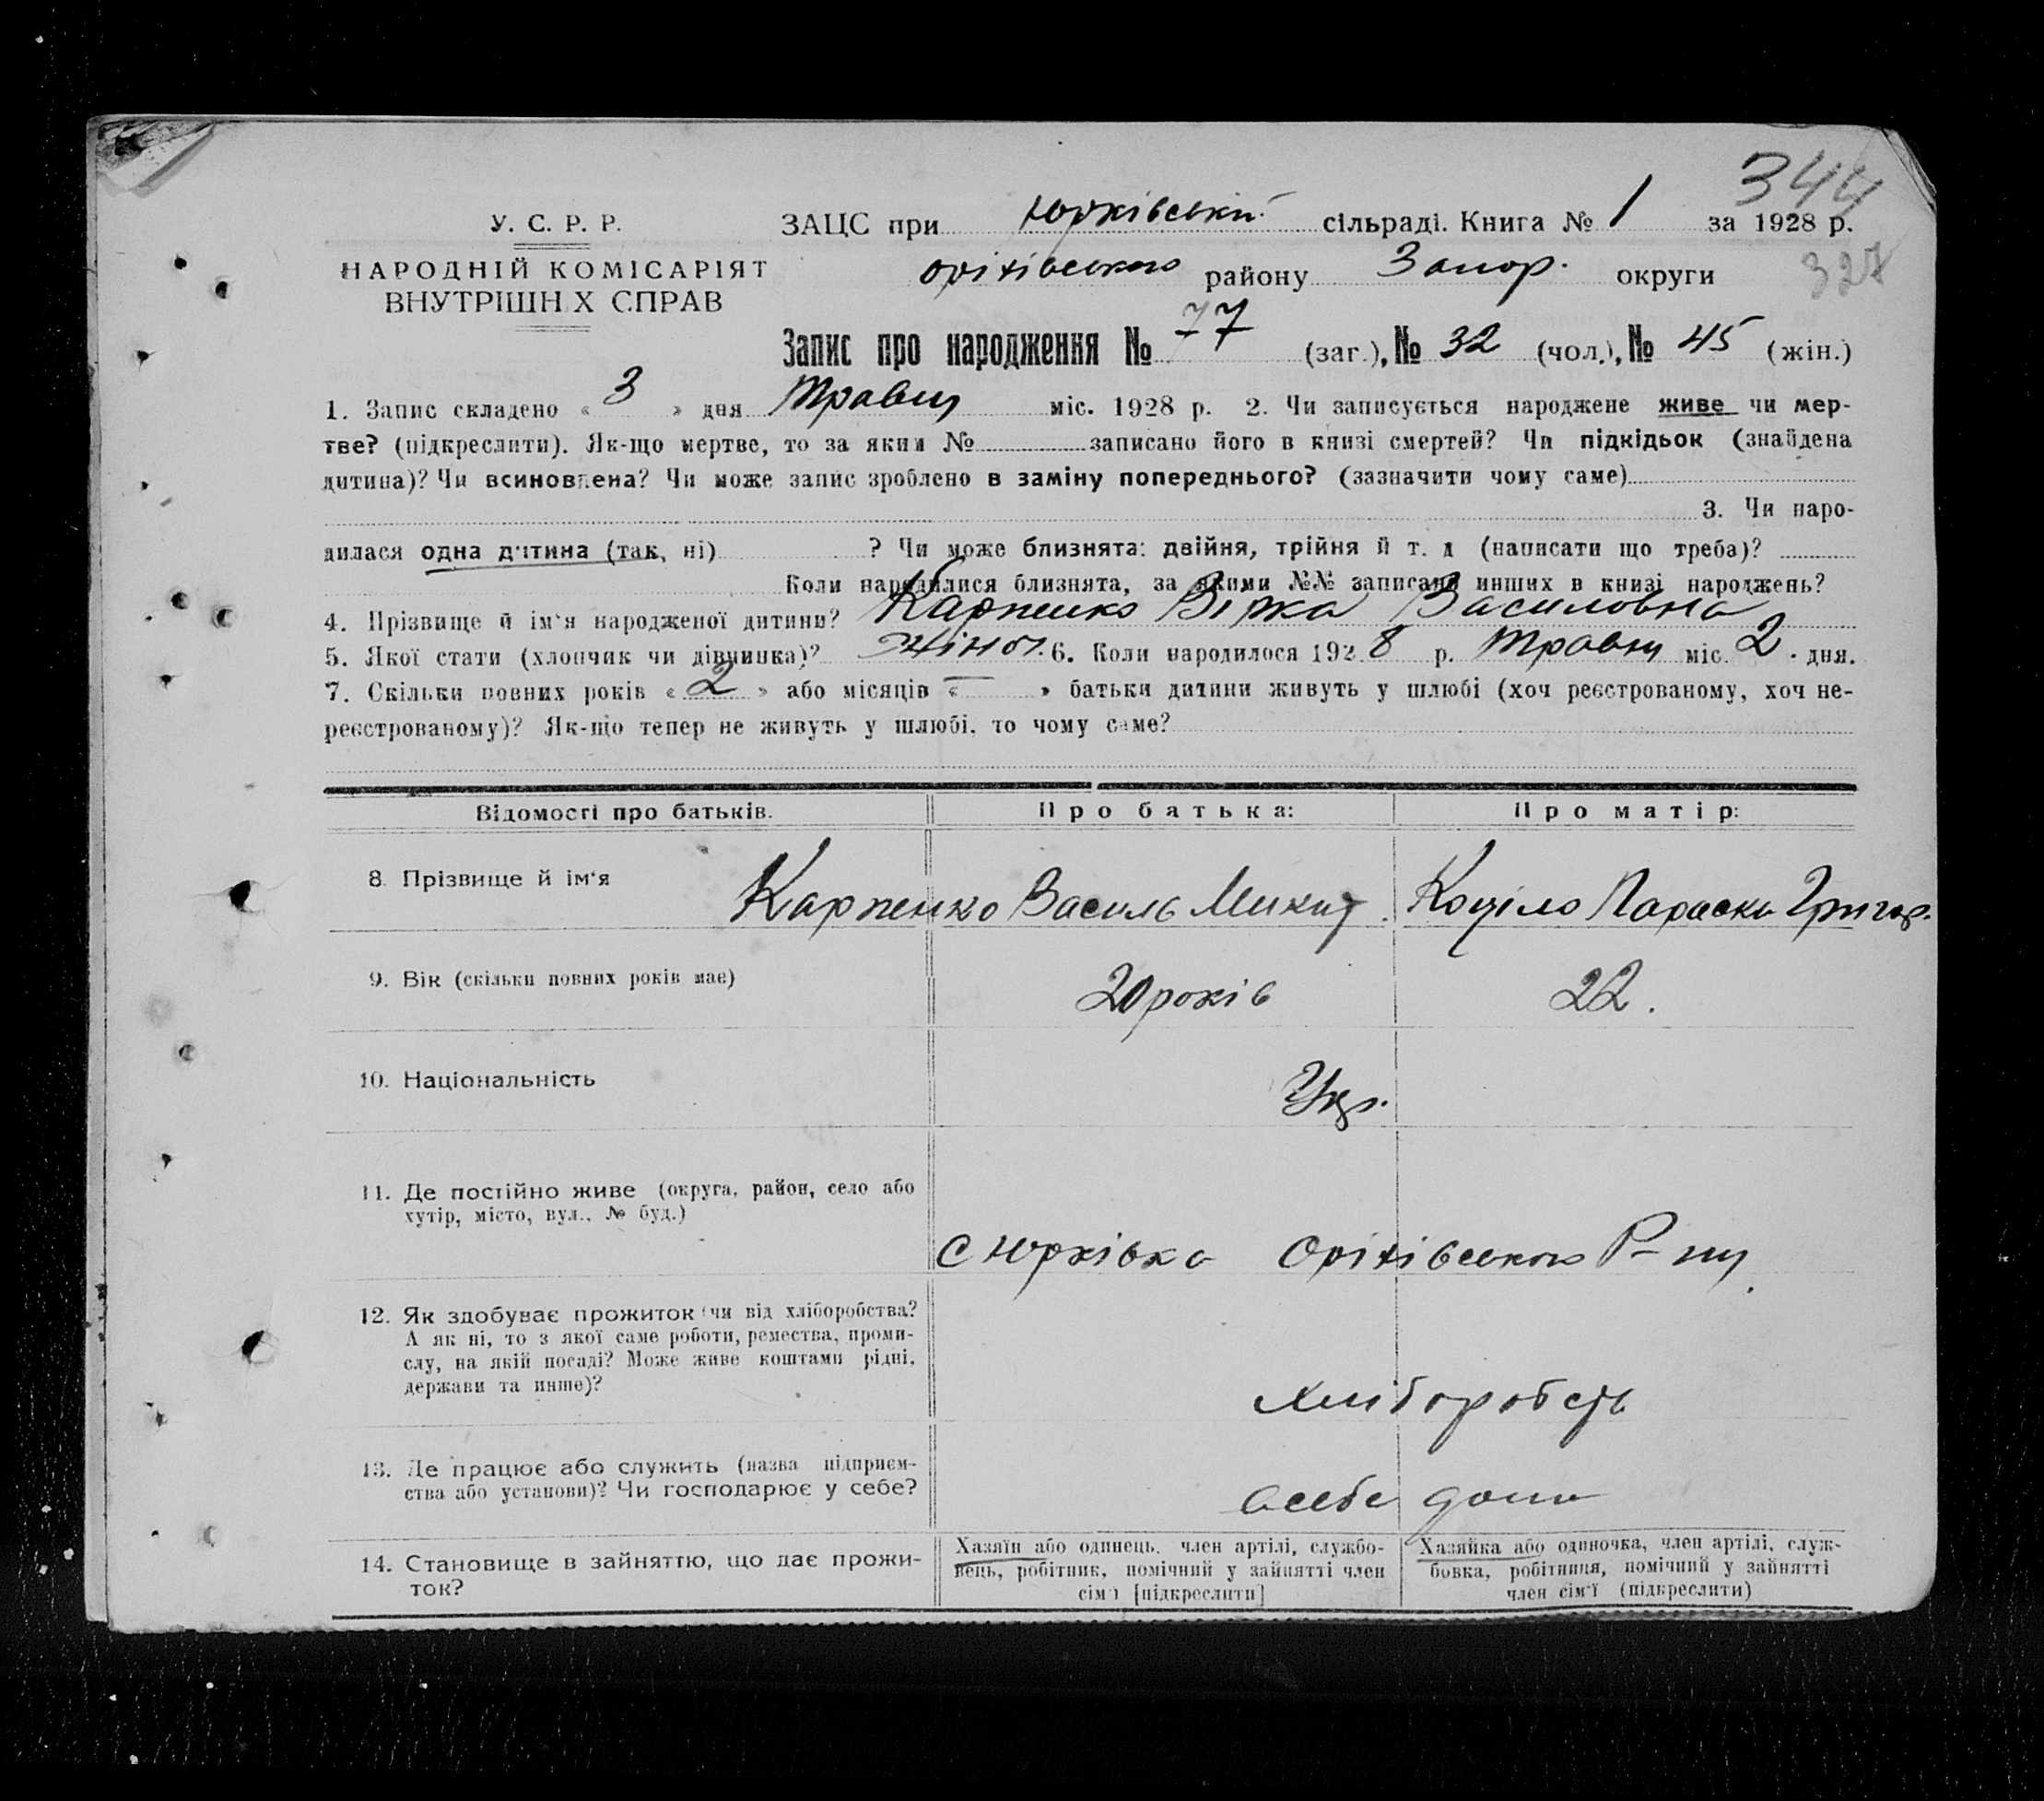 344
У. С. Р. Р.
НАРОДНІЙ КОМІСАРІЯТ
ВНУТРІШН Х СПРАВ
ЗАЦС при Юрківській сільраді. Книга № 1 за 1928 р.
Оріхівського району Запор. округи
327
Запис про народження № 77 (заг.), № 32 (чол.), № 45 (жін.)
1. Запис складено « 3 » дня Травня міс. 1928 р. 2. Чи записується народжене живе чи мер-
тве? (підкреслити). Як-що мертве, то за яким № записано його в книзі смертей? Чи підкідьок (знайдена
дитина)? Чи всиновлена? Чи може запис зроблено в заміну попереднього? (зазначити чому саме)
3. Чи наро-
дилася одна дитина (так, ні) ? Чи може близнята: двійня, трійня й т. д (написати що треба)?
Коли народилися близнята, за якими №№ записано инших в книзі народжень?
4. Прізвище й ім'я народженої дитини? Карпенко Вірка Василовна
5. Якої стати (хлопчик чи дівчинка)? жіноч. 6. Коли народилося 1928 р. Травня міс. 2 дня.
7. Скільки повних років « 2 » або місяців « — » батьки дитини живуть у шлюбі (хоч реєстрованому, хоч не-
реєстрованому)? Як-що тепер не живуть у шлюбі, то чому саме?
Відомості про батьків. Про батька: Про матір:
8. Прізвище й ім'я Карпенко Василь Микит. Коціло Параска Григор.
9. Вік (скільки повних років має) 20 років 22.
10. Національність Укр.
11. Де постійно живе (округа, район, село або
хутір, місто, вул., № буд.)
с Юрківка Оріхівського Р-ну
12. Як здобуває прожиток (чи від хліборобства?
А як ні, то з якої саме роботи, ремества, проми-
слу, на якій посаді? Може живе коштами рідні,
держави та инше)?
13. Де працює або служить (назва підприєм-
ства або установи)? Чи господарює у себе?
всебе дома
14. Становище в зайняттю, що дає прожи-
ток?
Хазяїн або одинець, член артілі, службо-
вець, робітник, помічний у зайнятті член
сім'ї [підкреслити]
Хазяйка або одиночка, член артілі, служ-
бовка, робітниця, помічний у зайнятті
член сім'ї (підкреслити)